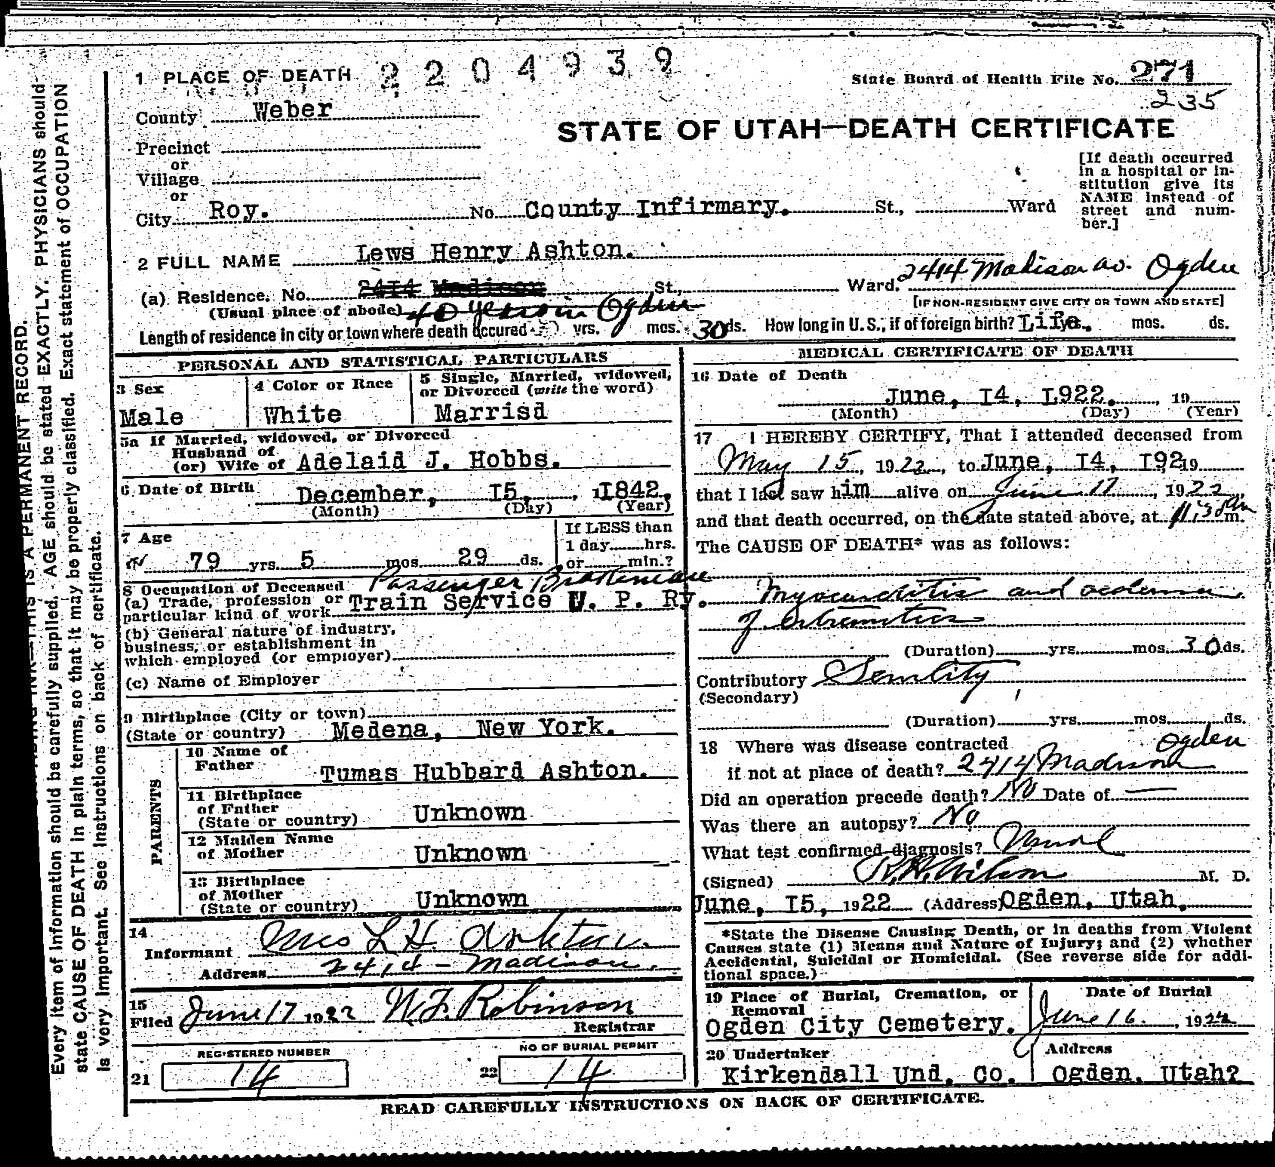 1 PLACE OF DEATH 2204939
State Board of Health File No. 271
235
County Weber
STATE OF UTAH—DEATH CERTIFICATE
Precinct
or
Village
or
City Roy. No. County Infirmary. St., Ward
[If death occurred in a hospital or in-
stitution give its
NAME instead of
street and num-
ber.]
2 FULL NAME Lews Henry Ashton.
(a) Residence. No. 2414 Madison St., Ward, 2414 Madison av. Ogden
(Usual place of abode) 40 years in Ogden [IF NON-RESIDENT GIVE CITY OR TOWN AND STATE]
Length of residence in city or town where death occured yrs. mos. 30 ds. How long in U.S., if of foreign birth? Life. yrs. mos. ds.
PERSONAL AND STATISTICAL PARTICULARS
3 Sex
Male
4 Color or Race
White
5 Single, Married, widowed,
or Divorced (write the word)
Marrisd
5a If Married, widowed, or Divorced
Husband of
(or) Wife of Adelaid J. Hobbs.
6 Date of Birth December, I5, 1842,
(Month) (Day) (Year)
7 Age
79 yrs. 5 mos 29 ds.
If LESS than
1 day hrs.
or min.?
8 Occupation of Deceased Passenger Brakeman
(a) Trade, profession or
particular kind of work Train Service U. P. Ry.
(b) General nature of industry,
business, or establishment in
which employed (or employer)
(c) Name of Employer
9 Birthplace (City or town)
(State or country) Medena, New York.
PARENTS
10 Name of
Father Tumas Hubbard Ashton.
11 Birthplace
of Father
(State or country) Unknown
12 Maiden Name
of Mother Unknown
13 Birthplace
of Mother
(State or country) Unknown
14
Informant Mrs L H. Ashton.
Address 2414 - Madison.
15
Filed June 17 1922 W. F. Robinson
Registrar
REGISTERED NUMBER
21 14
NO OF BURIAL PERMIT
22 14
MEDICAL CERTIFICATE OF DEATH
16 Date of Death
June, I4, I922. 19
(Month) (Day) (Year)
17 I HEREBY CERTIFY, That I attended deceased from
May 15, 1922, to June, I4, I92 19
that I last saw him alive on June 17, 1922
and that death occurred, on the date stated above, at m.
The CAUSE OF DEATH* was as follows:
Myocarditis and oedema
of extremities
(Duration) yrs. mos. 30 ds.
Contributory Senility
(Secondary)
(Duration) yrs. mos. ds.
18 Where was disease contracted Ogden
if not at place of death? 2414 Madison
Did an operation precede death? No Date of —
Was there an autopsy? No
What test confirmed diagnosis? Usual
(Signed) R. H. Wilson M. D.
June, I5, 1922 (Address) Ogden, Utah.
*State the Disease Causing Death, or in deaths from Violent
Causes state (1) Means and Nature of Injury; and (2) whether
Accidental, Suicidal or Homicidal. (See reverse side for addi-
tional space.)
19 Place of Burial, Cremation, or
Removal
Ogden City Cemetery.
Date of Burial
June 16, 1922
20 Undertaker
Kirkendall Und. Co.
Address
Ogden, Utah?
READ CAREFULLY INSTRUCTIONS ON BACK OF CERTIFICATE.
THIS IS A PERMANENT RECORD.
Every item of information should be carefully supplied. AGE should be stated EXACTLY. PHYSICIANS should
state CAUSE OF DEATH in plain terms, so that it may be properly classified. Exact statement of OCCUPATION
is very important. See instructions on back of certificate.